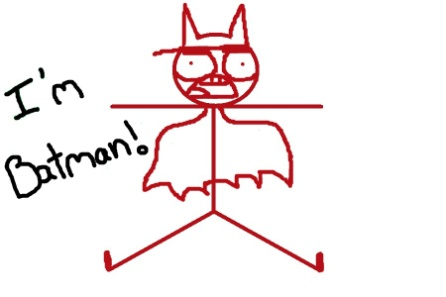 I'm
Batman!